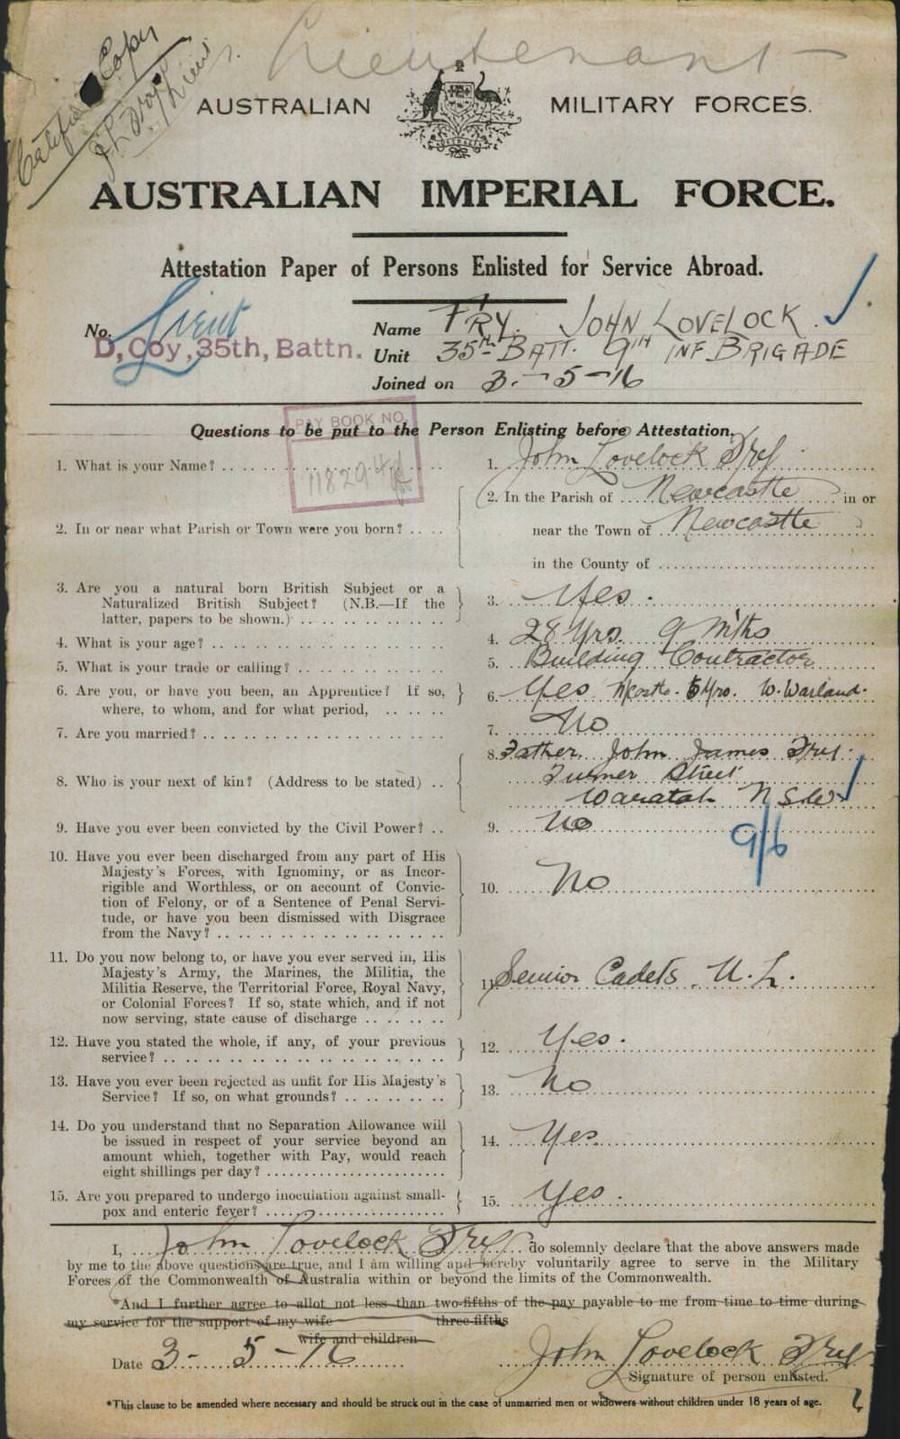 Lieutenant
Certified Copy
Lieut.
AUSTRALIAN MILITARY FORCES.
AUSTRALIAN IMPERIAL FORCE.
Attestation Paper of Persons Enlisted for Service Abroad.
No. Lieut
D, Coy, 35th, Battn.
Name FRY. JOHN LOVELOCK.
Unit 35TH BATT. 9TH INF. BRIGADE
Joined on 3-5-16
PAY BOOK NO.
Questions to be put to the Person Enlisting before Attestation.
1. What is your Name? 1. John Lovelock Fry
2. In or near what Parish or Town were you born? 2. In the Parish of Newcastle in or
near the Town of Newcastle
in the County of
3. Are you a natural born British Subject or a
Naturalized British Subject? (N.B.—If the
latter, papers to be shown.) 3. Yes.
4. What is your age? 4. 28 Yrs. 9 Mths
5. What is your trade or calling? 5. Building Contractor
6. Are you, or have you been, an Apprentice? If so,
where, to whom, and for what period, 6. Yes Ncastle. 5 Yrs. W. Warland.
7. Are you married? 7. No
8. Who is your next of kin? (Address to be stated) 8. Father John James Fry.
Turner Street
Waratah NSW
9. Have you ever been convicted by the Civil Power? 9. No
9/6
10. Have you ever been discharged from any part of His
Majesty's Forces, with Ignominy, or as Incor-
rigible and Worthless, or on account of Convic-
tion of Felony, or of a Sentence of Penal Servi-
tude, or have you been dismissed with Disgrace
from the Navy? 10. No
11. Do you now belong to, or have you ever served in, His
Majesty's Army, the Marines, the Militia, the
Militia Reserve, the Territorial Force, Royal Navy,
or Colonial Forces? If so, state which, and if not
now serving, state cause of discharge 11. Senior Cadets. U. L.
12. Have you stated the whole, if any, of your previous
service? 12. Yes.
13. Have you ever been rejected as unfit for His Majesty's
Service? If so, on what grounds? 13. No
14. Do you understand that no Separation Allowance will
be issued in respect of your service beyond an
amount which, together with Pay, would reach
eight shillings per day? 14. Yes
15. Are you prepared to undergo inoculation against small-
pox and enteric fever? 15. Yes.
I, John Lovelock Fry do solemnly declare that the above answers made
by me to the above questions are true, and I am willing and hereby voluntarily agree to serve in the Military
Forces of the Commonwealth of Australia within or beyond the limits of the Commonwealth.
*And I further agree to allot not less than two-fifths of the pay payable to me from time to time during
my service for the support of my wife three-fifths
wife and children
Date 3-5-16 John Lovelock Fry
Signature of person enlisted.
*This clause to be amended where necessary and should be struck out in the case of unmarried men or widowers without children under 18 years of age.